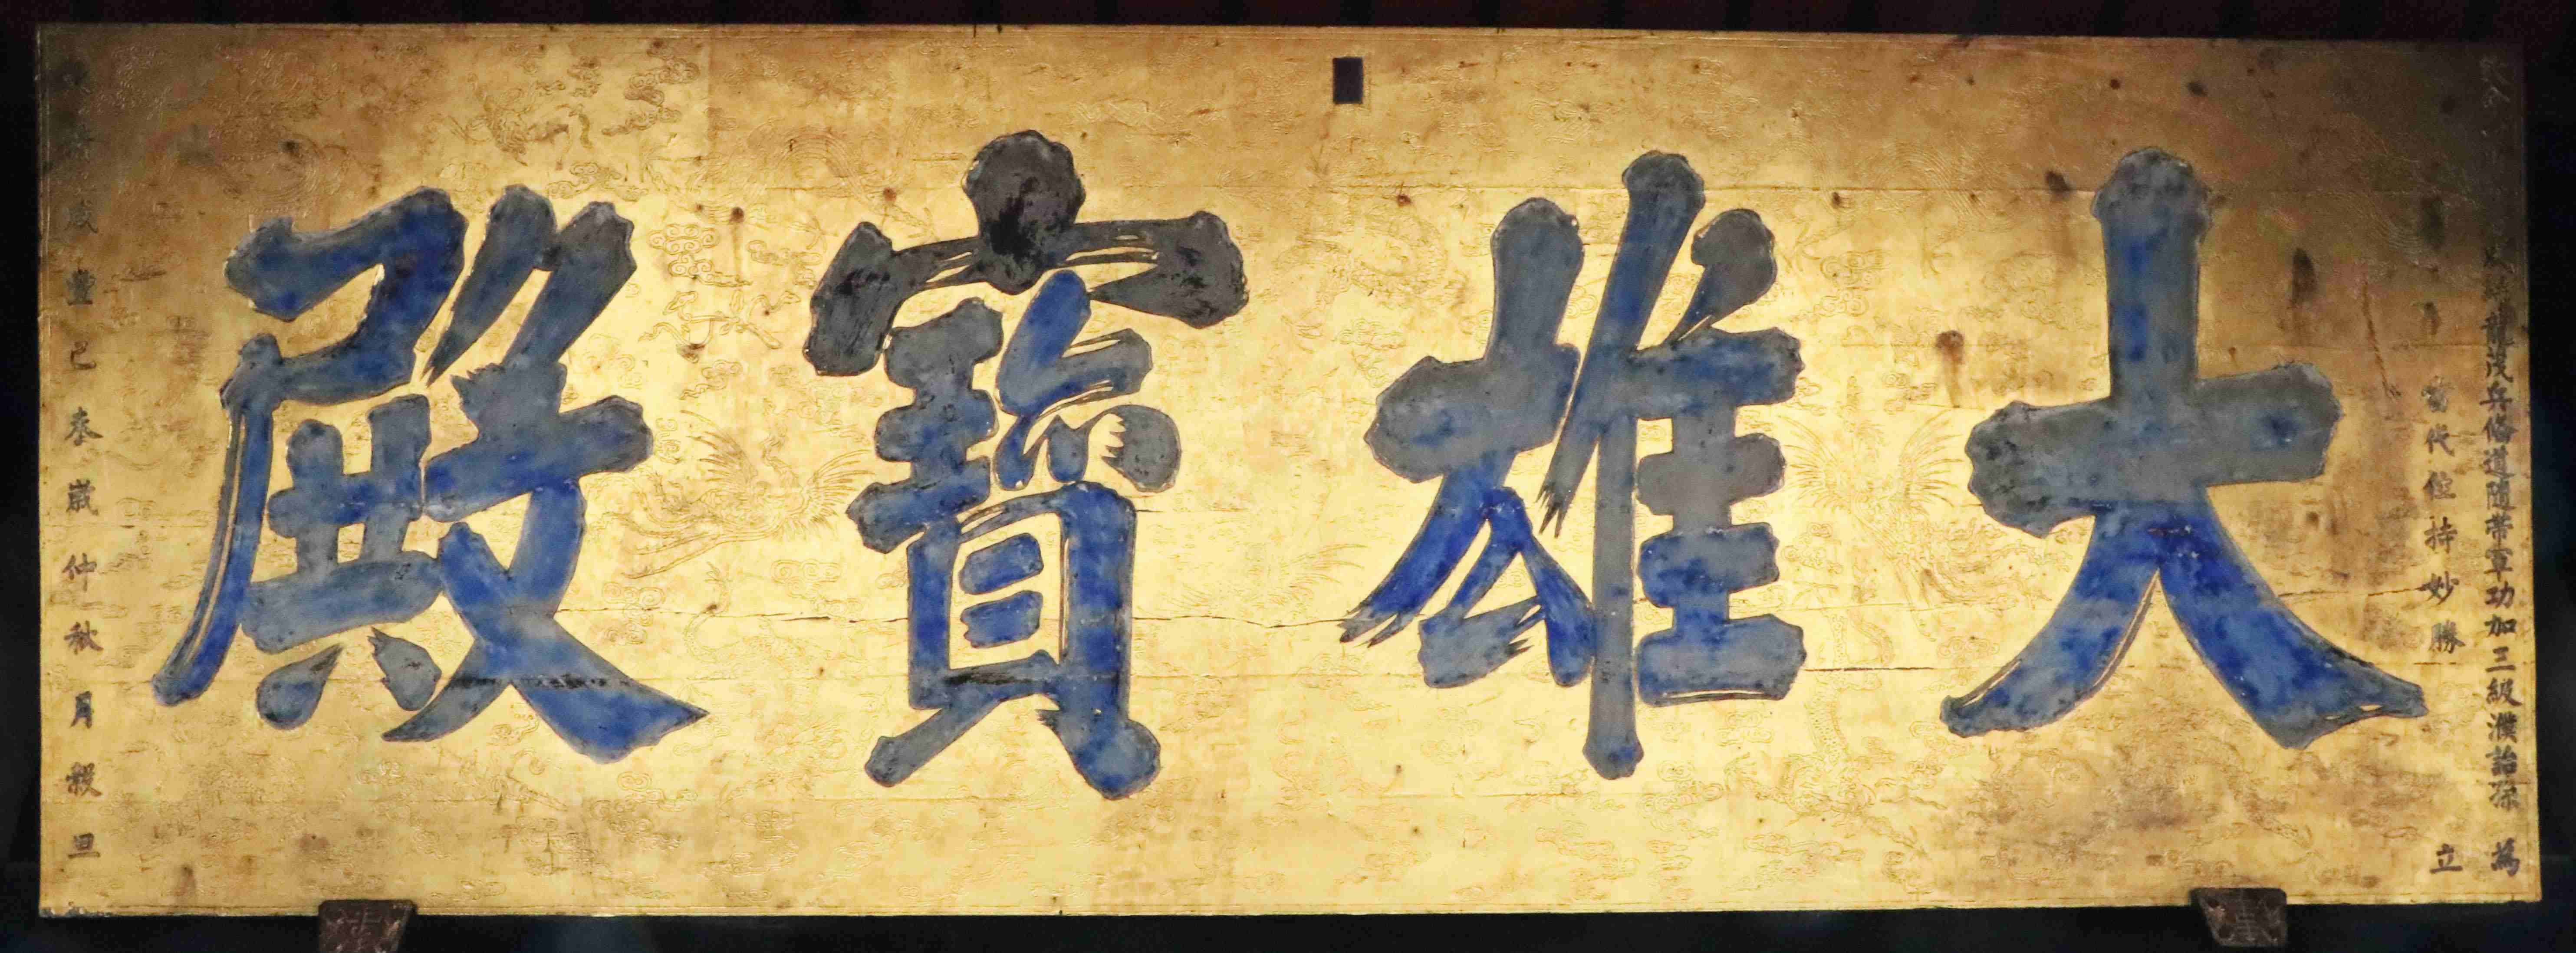 龍茂兵備道隨帶軍功加三級濮詒孫 為
當代住持妙勝 立
大雄寶殿
咸豐己未歲仲秋月穀旦